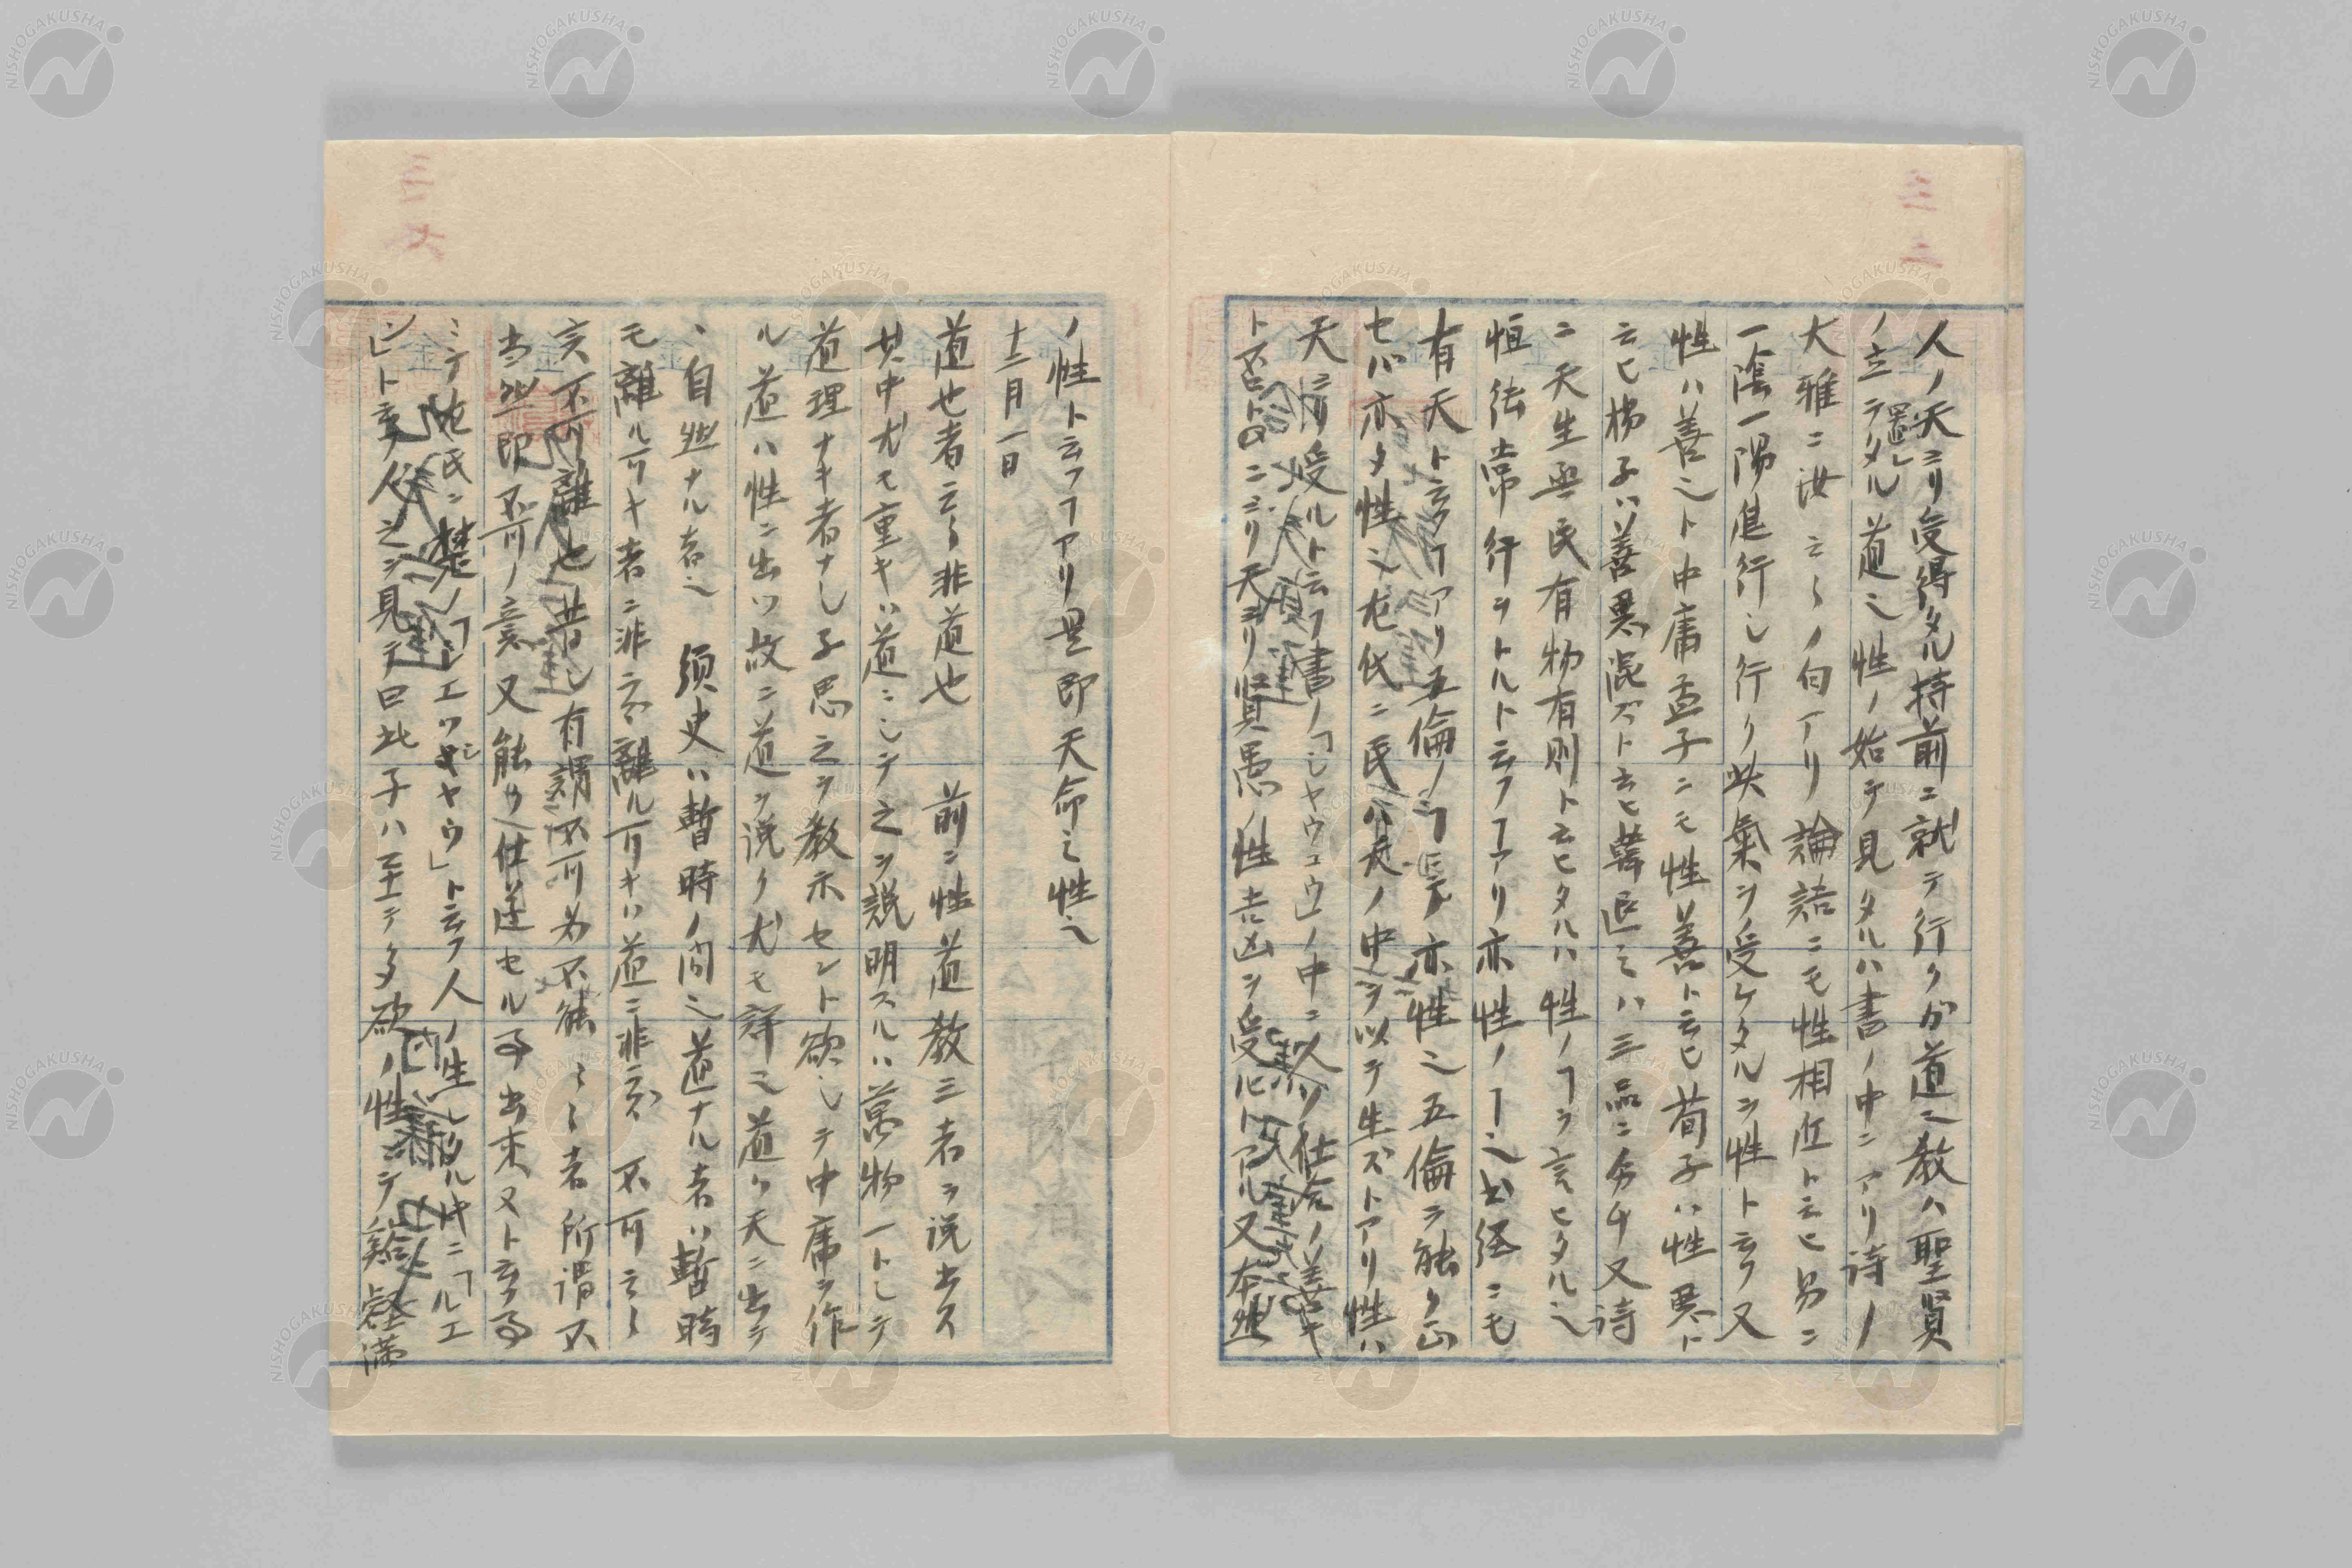 人ノ天ヨリ受得タル持前ニ就テ行クガ道也教ハ聖賢
ノ立置テタル道也性ノ始テ見タルハ書ノ中ニアリ詩ノ
大雅ニ汝云々ノ句アリ論語ニモ性相近ト云ヒ易ニ
一陰一陽進行シ行ク此氣ヲノ受ケタルヲ性ト云フ又
性ハ善也ト中庸孟子ニモ性善ト云ヒ荀子ハ性悪ト
云ヒ楊子ハ善悪混ズト云ヒ韓退之ハ三品ニ分チ又詩
ニ天生烝民有物有則ト云ヒタルハ性ノヿヲ言ヒタル也
恒法常行ヲトルト云フヿアリ亦性ノヿ也書経ニモ
有天ト云フヿアリ五倫ノヿ亦性也五倫ヲ能ク正
セバ亦タ性也左伝ニ民ハ天ノ中ヲ以テ生ズトアリ性ハ
天ヨリ受ルト云フ書ノ「シヤウエウ」ノ中ニ人ノ仕合ノ善キ
ト否トニヨリ天ヨリ賢愚ノ性吉凶ヲ受ルトアル又本然
ノ性ト云フヿアリ是即天命之性也
十二月一日
道也者云々非道也 前ニ性道教三者ヲ説出ス
其中尤モ重キハ道ニシテ之ヲ説明スルハ萬物一トシテ
道理ナキ者ナシ子思之ヲ教示セント欲シテ中庸ヲ作
ル道ハ性ニ出ヅ故ニ道ヲ説ク尤モ詳也道ハ天ニ出テ
自然ナル者也 須臾ハ暫時ノ間也道ナル者ハ暫時
モ離ル可キ者ニ非ズ離ル可キハ道ニ非ズ 不可云々
言不可離也昔シ有謂不可為不能 云々者所謂不
当然即不可ノ意又能ク仕遂セル事出来ヌト云フ事
ニテ左氏ニ楚ノ「シエツジヤウ」ト云フ人ノ生レタル時ニ「ルエ
ン」ト云フ人之ヲ見テ曰此子ハ至テ多欲ノ性ニテ谿壑満